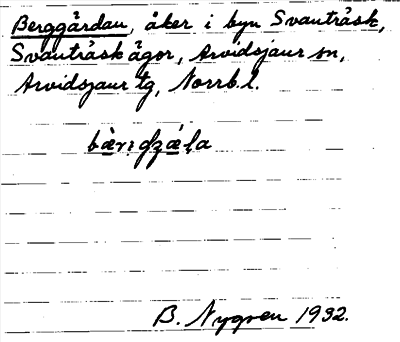 Berggårdan, åker i byn Svanträsk,
Svanträsk ägor, Arvidsjaur sn,
Arvidsjaur tg, Norrb.l.
B. Nygren 1932.